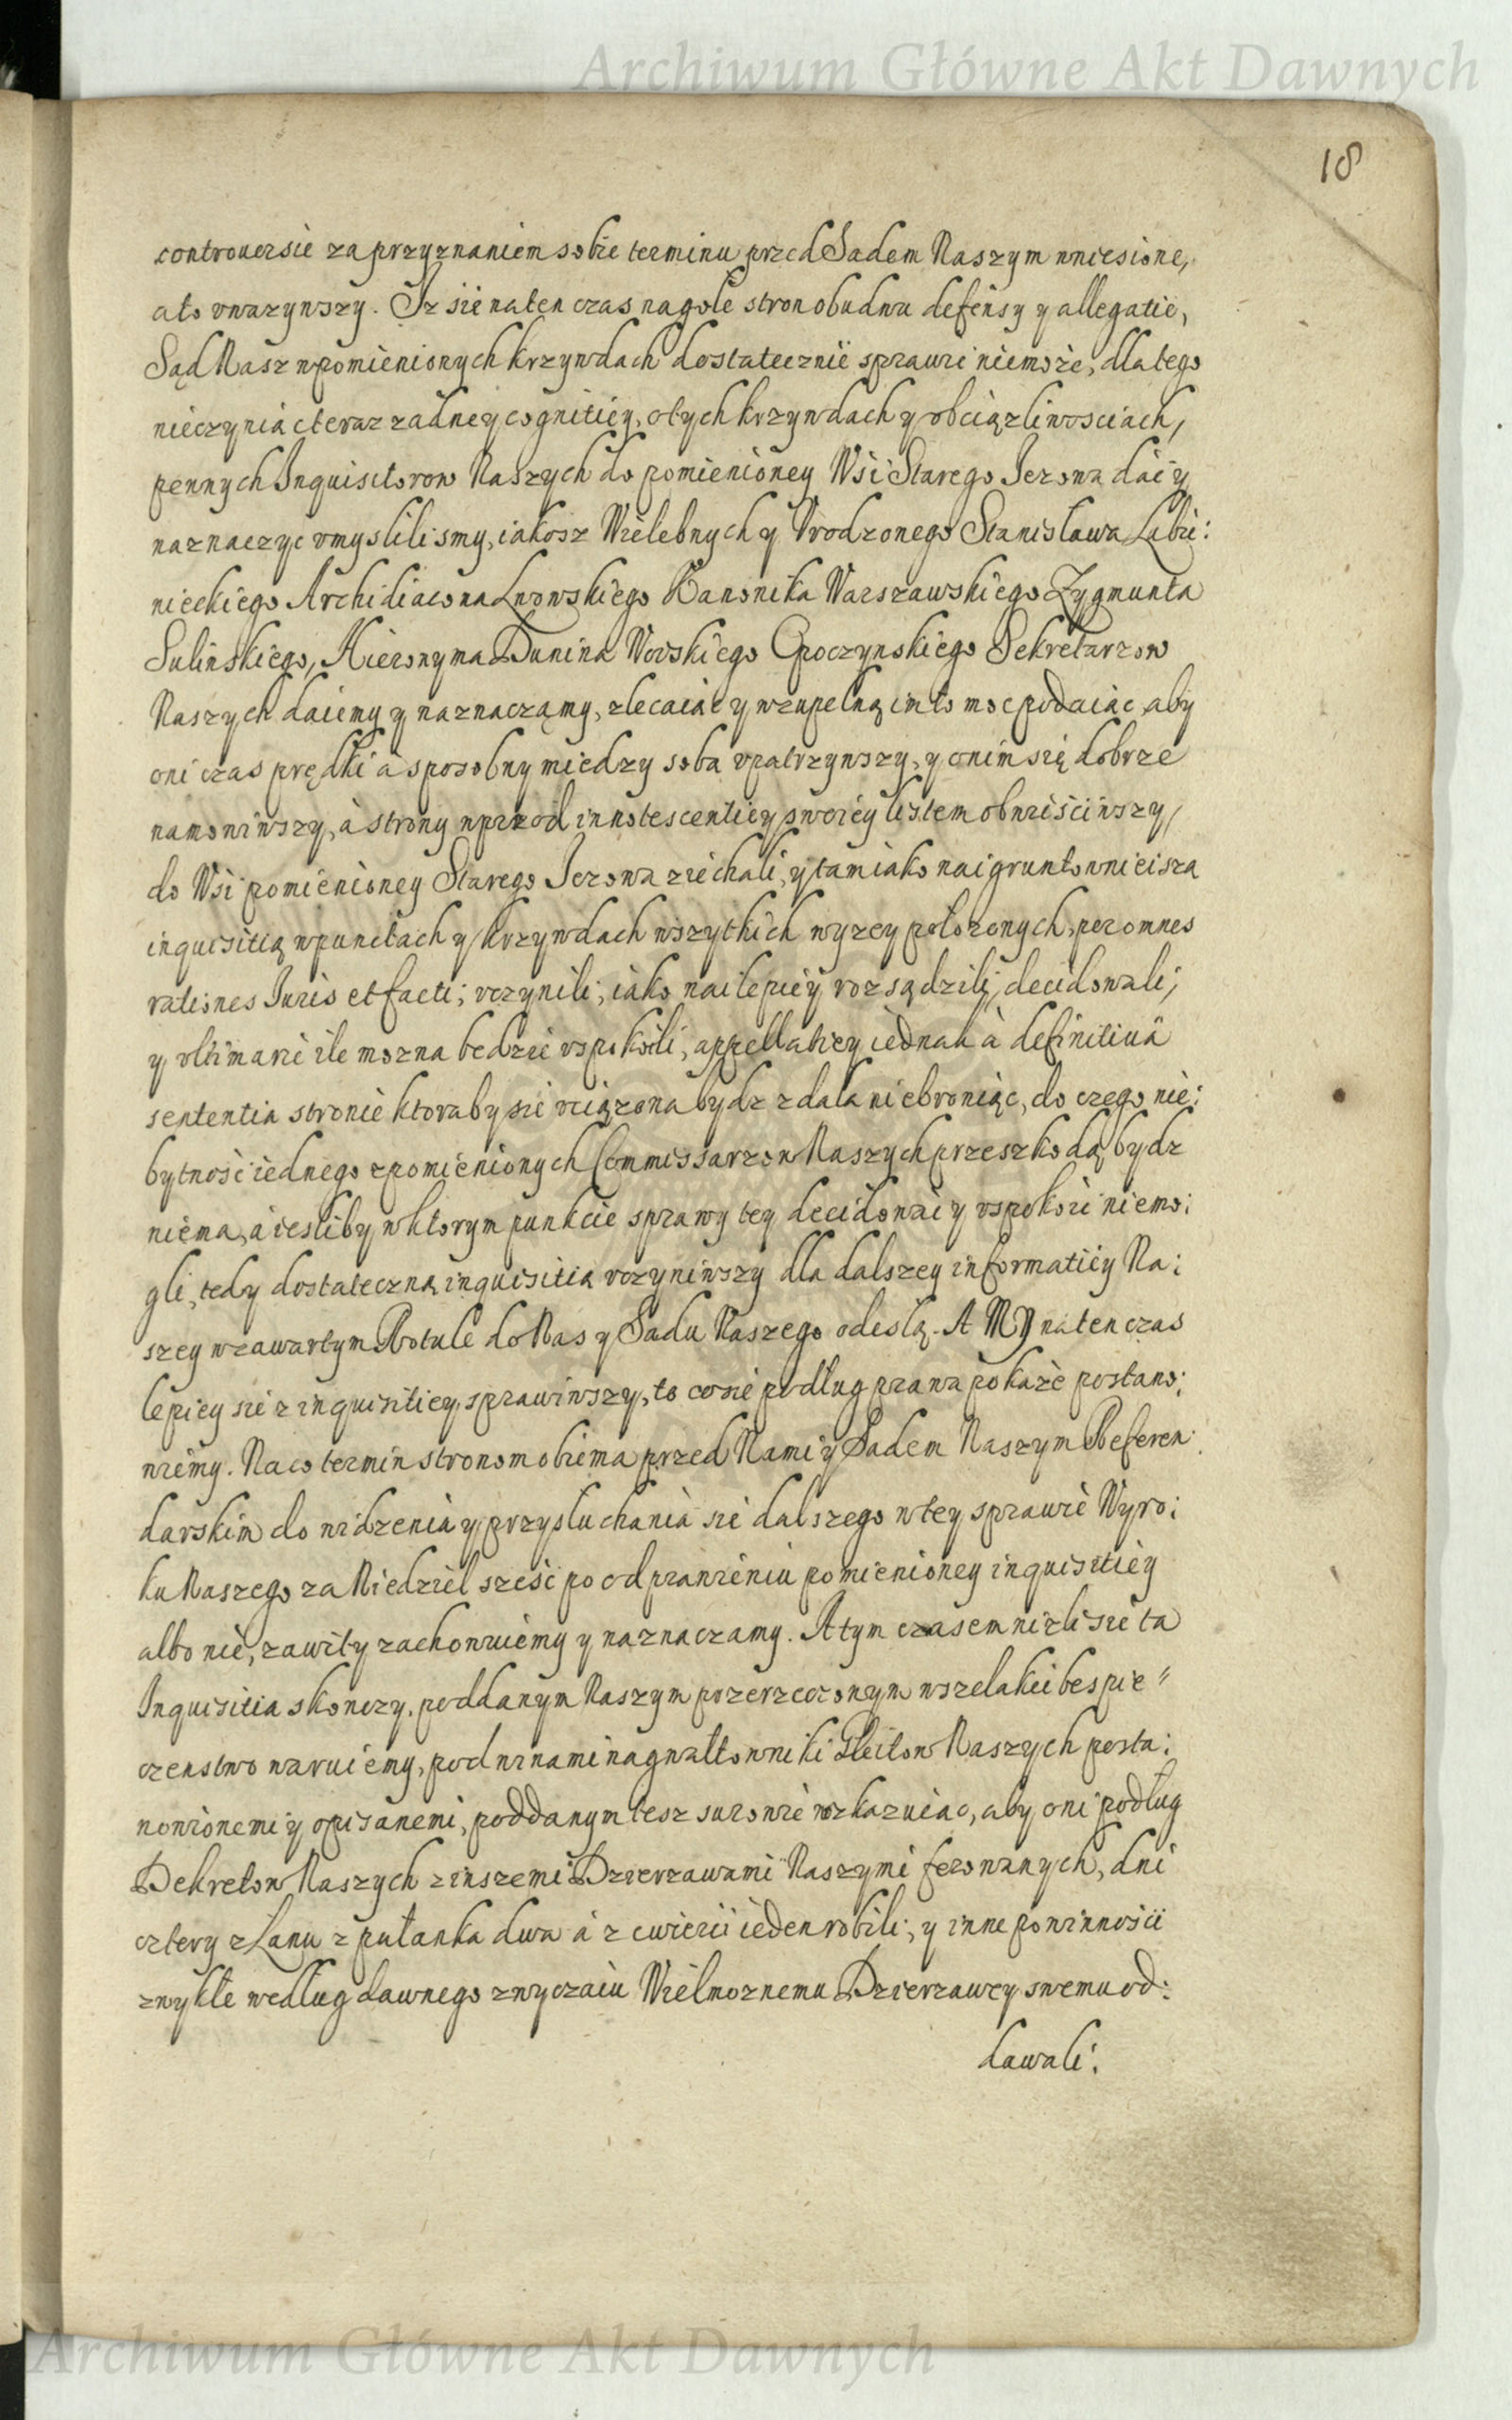 Archiwum Główne Akt Dawnych
18
controuersie za przyznaniem sobie terminu przed Sadem Naszym wniesione,
a to vwazywszy. Iz sie na ten czas na gołe stron obudwu defensy y allegatie,
Sąd Nasz w pomienionych krzywdach dostatecznie sprawić niemoże, dla tego
nieczyniąc teraz zadney cognitiey, o tych krzywdach y obciązliwosciach,
pewnych Inquisitorow Naszych do pomienioney Wsi Starego Iezowa dać y
naznaczyc vmyslilismy, iakosz Wielebnych y Vrodzonego Stanisława Lubie:
nieckiego Archidiacona Lwowskiego Kanonika Warszawskiego Zygmunta
Sulinskiego, Hieronyma Dunina Wąsowskiego Opoczynskiego Sekretarzow
Naszych daiemy y naznaczamy, zlecaiąc y wzupełną im to moc podaiąc, aby
oni czas prędki a sposobny miedzy soba vpatrzywszy, y onim się dobrze
namowiwszy, a strony wprzod innotescentiey swoiey listem obwieściwszy,
do Wsi pomienioney Starego Iezowa ziechali, y tam iako naigruntownieisza
inquisitią w punctach y krzywdach wszytkich wyzey położonych, per omnes
rationes Iuris et facti; vczynili, iako nailepiey rozsądzili, decidowali,
y vltimarie ile mozna bedzie vspokoili, appellatiey iednak à definitiuâ
sententia stronie ktoraby sie vciązona bydz zdała niebroniąc, do czego nie:
bytność iednego z pomienionych Commissarzow Naszych przeszkodą bydz
niema, a iesliby w ktorym punkcie sprawy tey decidować y vspokoić niemo:
gli, tedy dostateczną inquisitią vczyniwszy dla dalszey informatiey Na:
szey w zawartym Rotule do Nas y Sadu Naszego odeslą. A MY na ten czas
lepiey sie z inquisitiey sprawiwszy, to co sie podług prawa pokaże postano:
wiemy. Na co termin stronom obiema przed Nami y Sadem Naszym Referen:
darskim do widzenia y przysłuchania sie dalszego w tey sprawie Wyro:
ku Naszego za Niedziel sześć po odprawieniu pomienioney inquisitiey
albo nie, zawity zachowuiemy y naznaczamy. A tym czasem nizli sie ta
Inquisitia skonczy, poddanym Naszym przerzeczonym wszelakie bespie"
czenstwo waruiemy, pod winami na gwałtowniki Gleitow Naszych posta:
nowionemi y opisanemi, poddanym tesz surowie rozkazuiąc, aby oni podług
Dekretow Naszych z inszemi Dzierzawami Naszymi ferowanych, dni
cztery z Łanu z pułanka dwa a z cwierci ieden robili; y inne powinności
zwykłe według dawnego zwyczaiu Wielmoznemu Dzierzawcy swemu od:
dawali:
Archiwum Główne Akt Dawnych